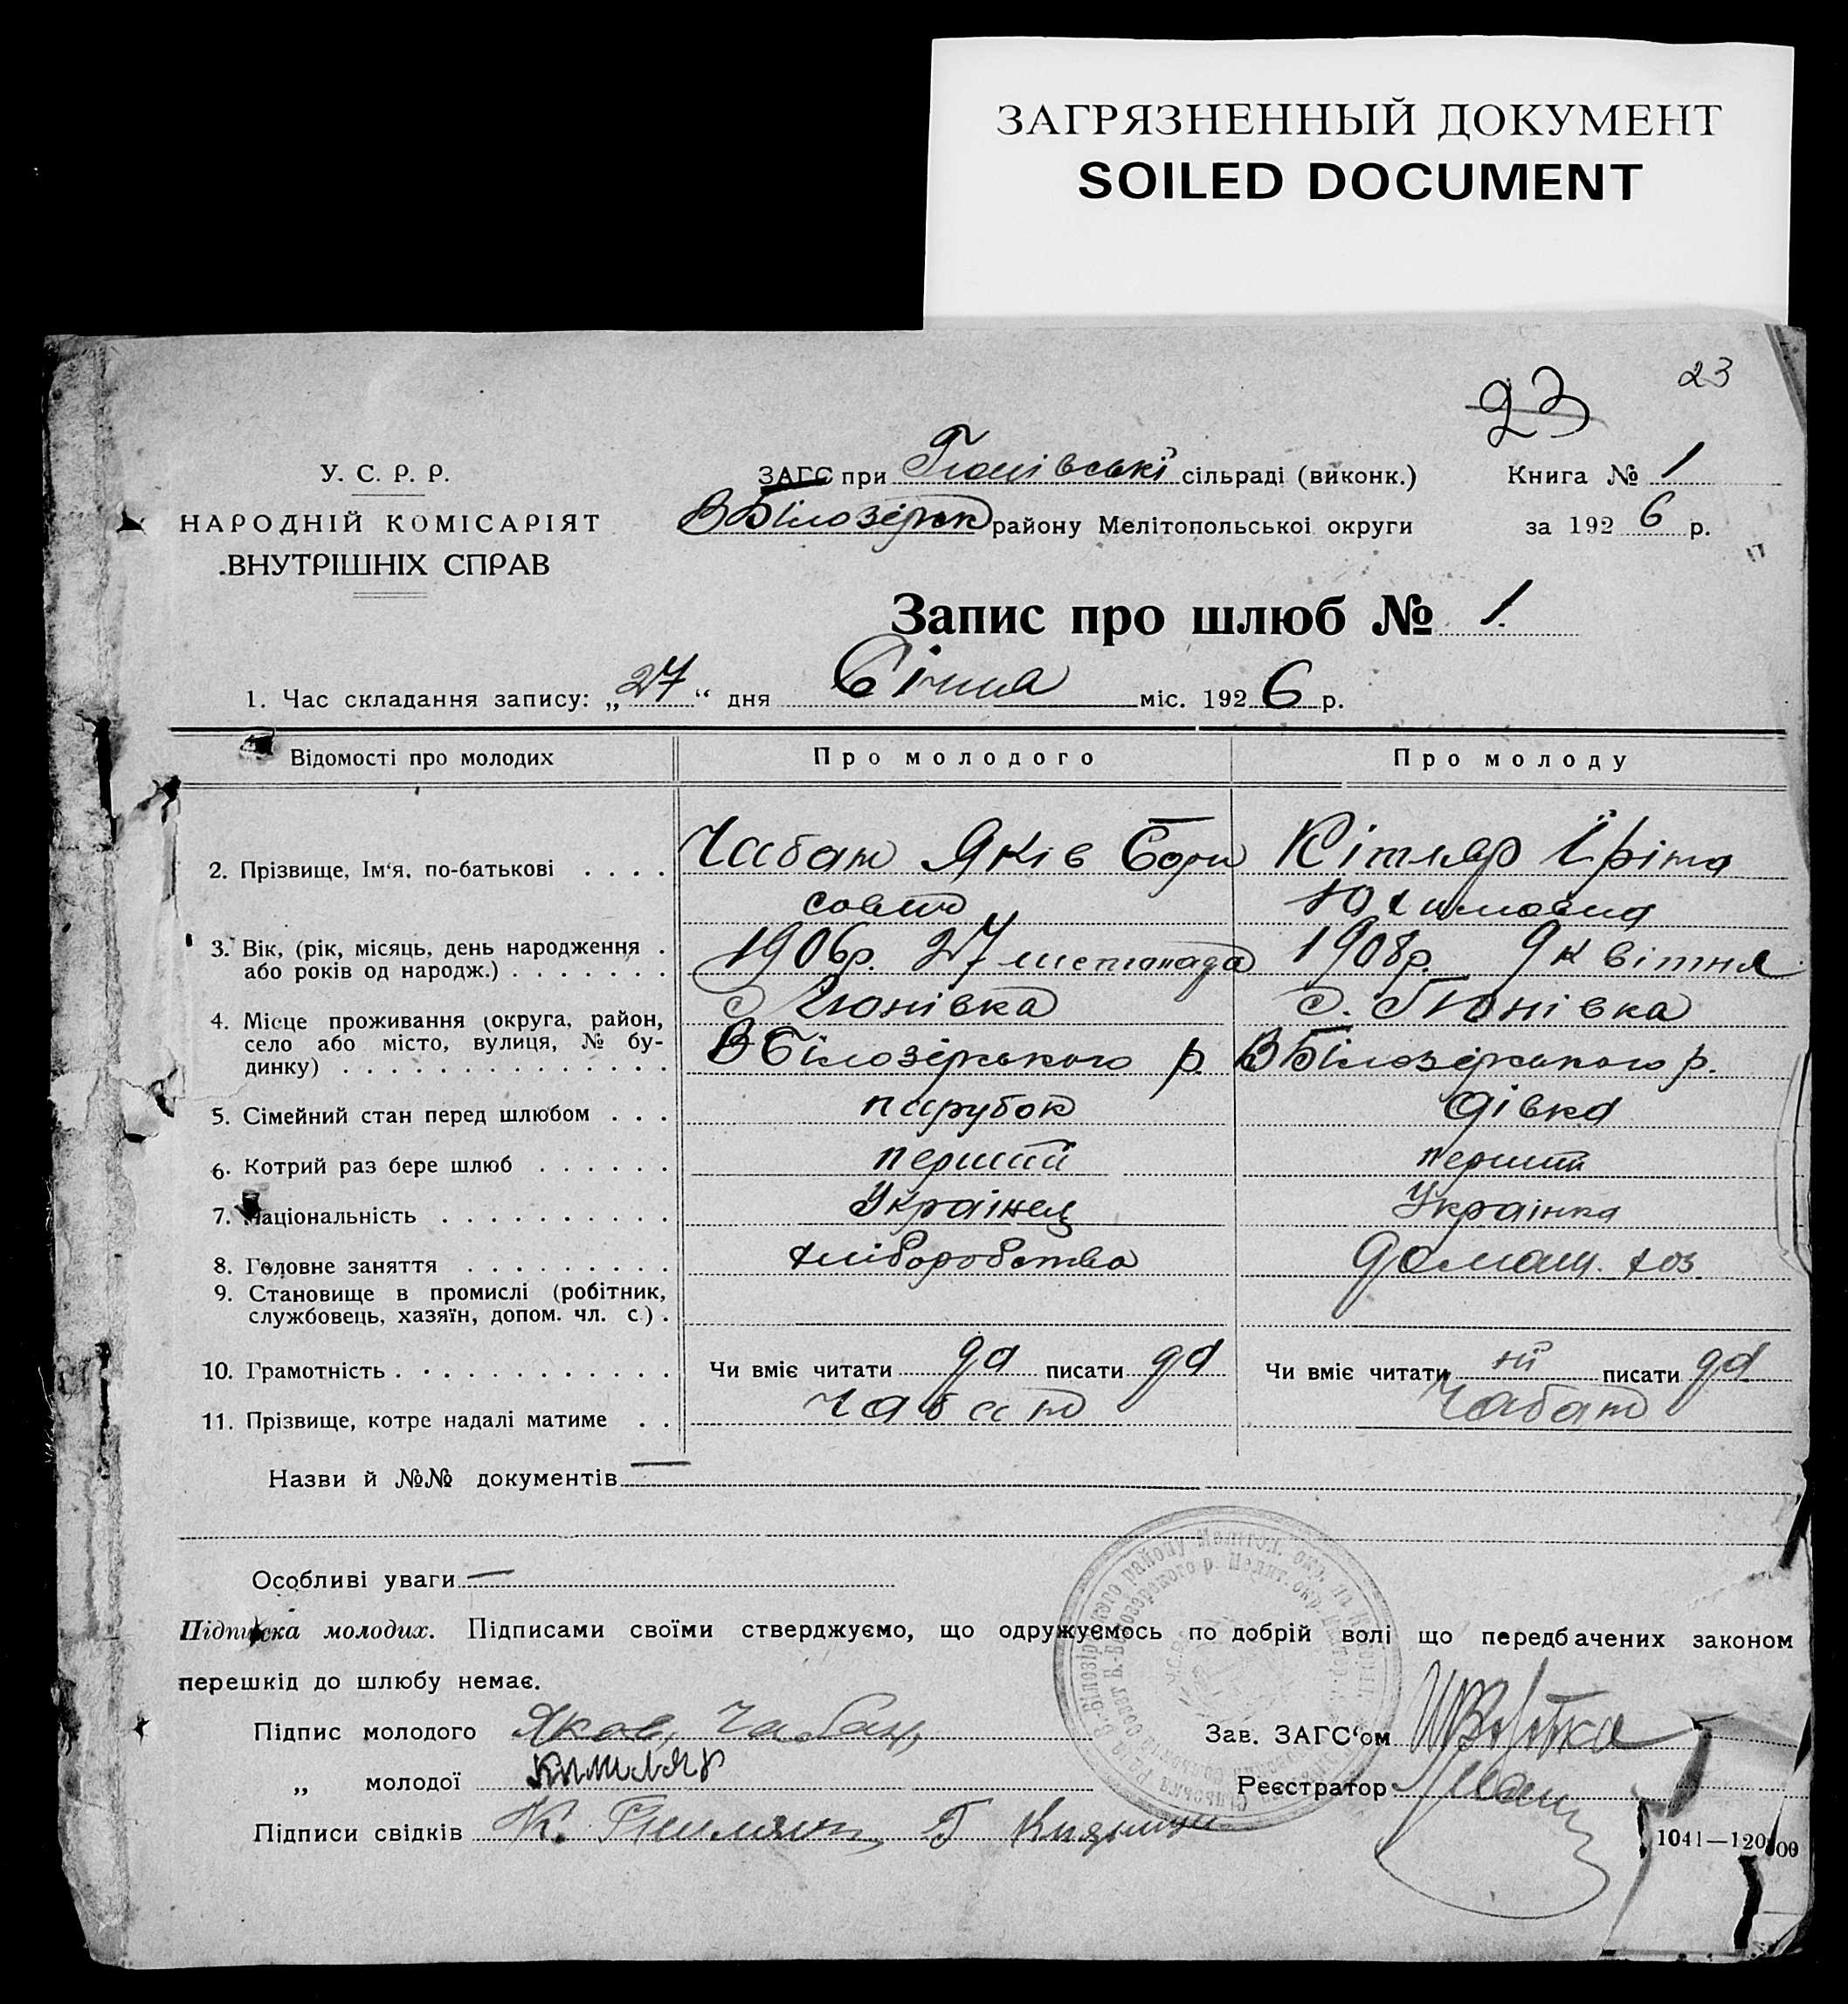 ЗАГРЯЗНЕННЫЙ ДОКУМЕНТ
SOILED DOCUMENT
23
23
У. С. Р. Р.
НАРОДНІЙ КОМІСАРІЯТ
ВНУТРІШНІХ СПРАВ
ЗАГС при Гюнівські сільраді (виконк.)
ВБілозерськ району Мелітопольської округи
Книга № 1
за 1926 р.
Запис про шлюб № 1.
1. Час складання запису: „27“ дня Січня міс. 1926 р.
Відомості про молодих Про молодого Про молоду
2. Прізвище, Ім‘я, по-батькові . . . . Чабан Яків Бори Кітляр
сович Юхимовна
3. Вік, (рік, місяць, день народження . 1906р. 27 листопада 1908р. 9 квітня
або років од народж.) . . . . . . .
4. Місце проживання (округа, район, с Гюнівка с. Гюнівка
село або місто, вулиця, № бу-
динку) . . . . . . . . . . . . . . ВБілозірського р. ВБілозірського р.
5. Сімейний стан перед шлюбом . . . парубок дівка
6. Котрий раз бере шлюб . . . . . . перший перший
7. Національність . . . . . . . . . . Українец Українка
8. Головне заняття . . . . . . . . . хліборобства домаш. хоз.
9. Становище в промислі (робітник,
службовець, хазяїн, допом. чл. с.) .
10. Грамотність . . . . . . . . . . . . Чи вміє читати да писати да Чи вміє читати писати да
11. Прізвище, котре надалі матиме . . Чабан Чабан
Назви й №№ документів —
Особливі уваги —
Підписка молодих. Підписами своїми стверджуємо, що одружуємось по добрій волі що передбачених законом
перешкід до шлюбу немає.
Підпис молодого Яков Чабан
„ молодої Китляр
Зав. ЗАГС‘ом
Реєстратор
Підписи свідків К. Г
1041—120000